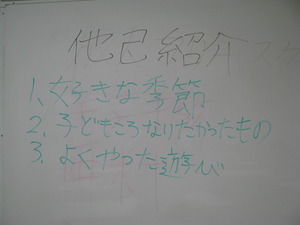 他己紹介
1、好きな季節
2、子どもころなりたかったもの
3、よくやった遊び